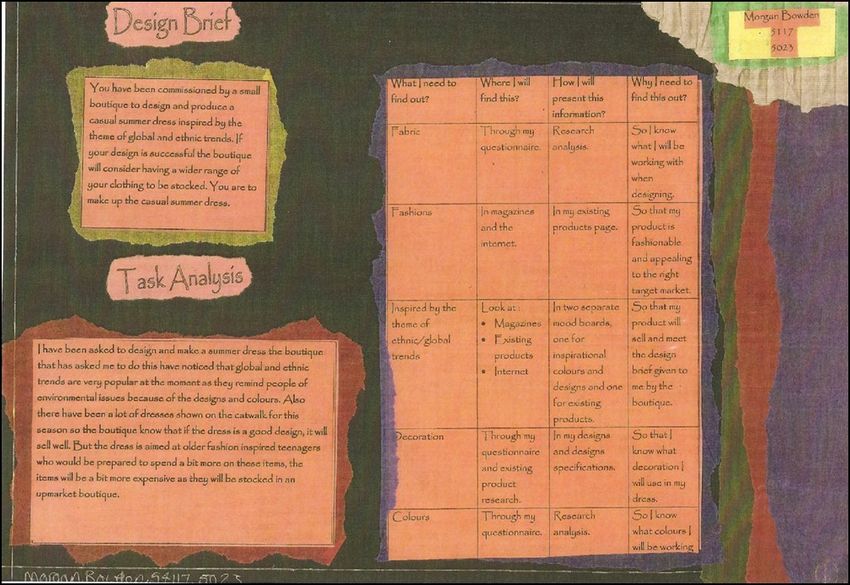 Design Brief
You have been commissioned by a small
boutique to design and produce a
casual summer dress inspired by the
theme of global and ethnic trends. If
your design is successful the boutique
will consider having a wider range of
your clothing to be stocked. You are to
make up the casual summer dress.
Task Analysis
I have been asked to design and make a summer dress the boutique
that has asked me to do this have noticed that global and ethnic
trends are very popular at the moment as they remind people of
environmental issues because of the designs and colours. Also
there have been a lot of dresses shown on the catwalk for this
season so the boutique know that if the dress is a good design, it will
sell well. But the dress is aimed at older fashion inspired teenagers
who would be prepared to spend a bit more on these items, the
items will be a bit more expensive as they will be stocked in an
upmarket boutique.
What I need to
find out?
Where I will
find this?
How I will
present this
information?
Why I need to
find this out?
Fabric
Through my
questionnaire.
Research
analysis.
So I know
what I will be
working with
when
designing.
Fashions
In magazines
and the
internet.
In my existing
products page.
So that my
product is
fashionable
and appealing
to the right
target market.
Inspired by the
theme of
ethnic/global
trends
Look at :
• Magazines
• Existing
products
• Internet
In two separate
mood boards,
one for
inspirational
colours and
designs and one
for existing
products.
So that my
product will
sell and meet
the design
brief given to
me by the
boutique.
Decoration
Through my
questionnaire
and existing
product
research.
In my designs
and designs
specifications.
So that I
know what
decoration I
will use in my
dress.
Colours
Through my
questionnaire.
Research
analysis.
So I know
what colours I
will be working
Morgan Bowden
5117
5023
Morgan Bowden 5117 5023